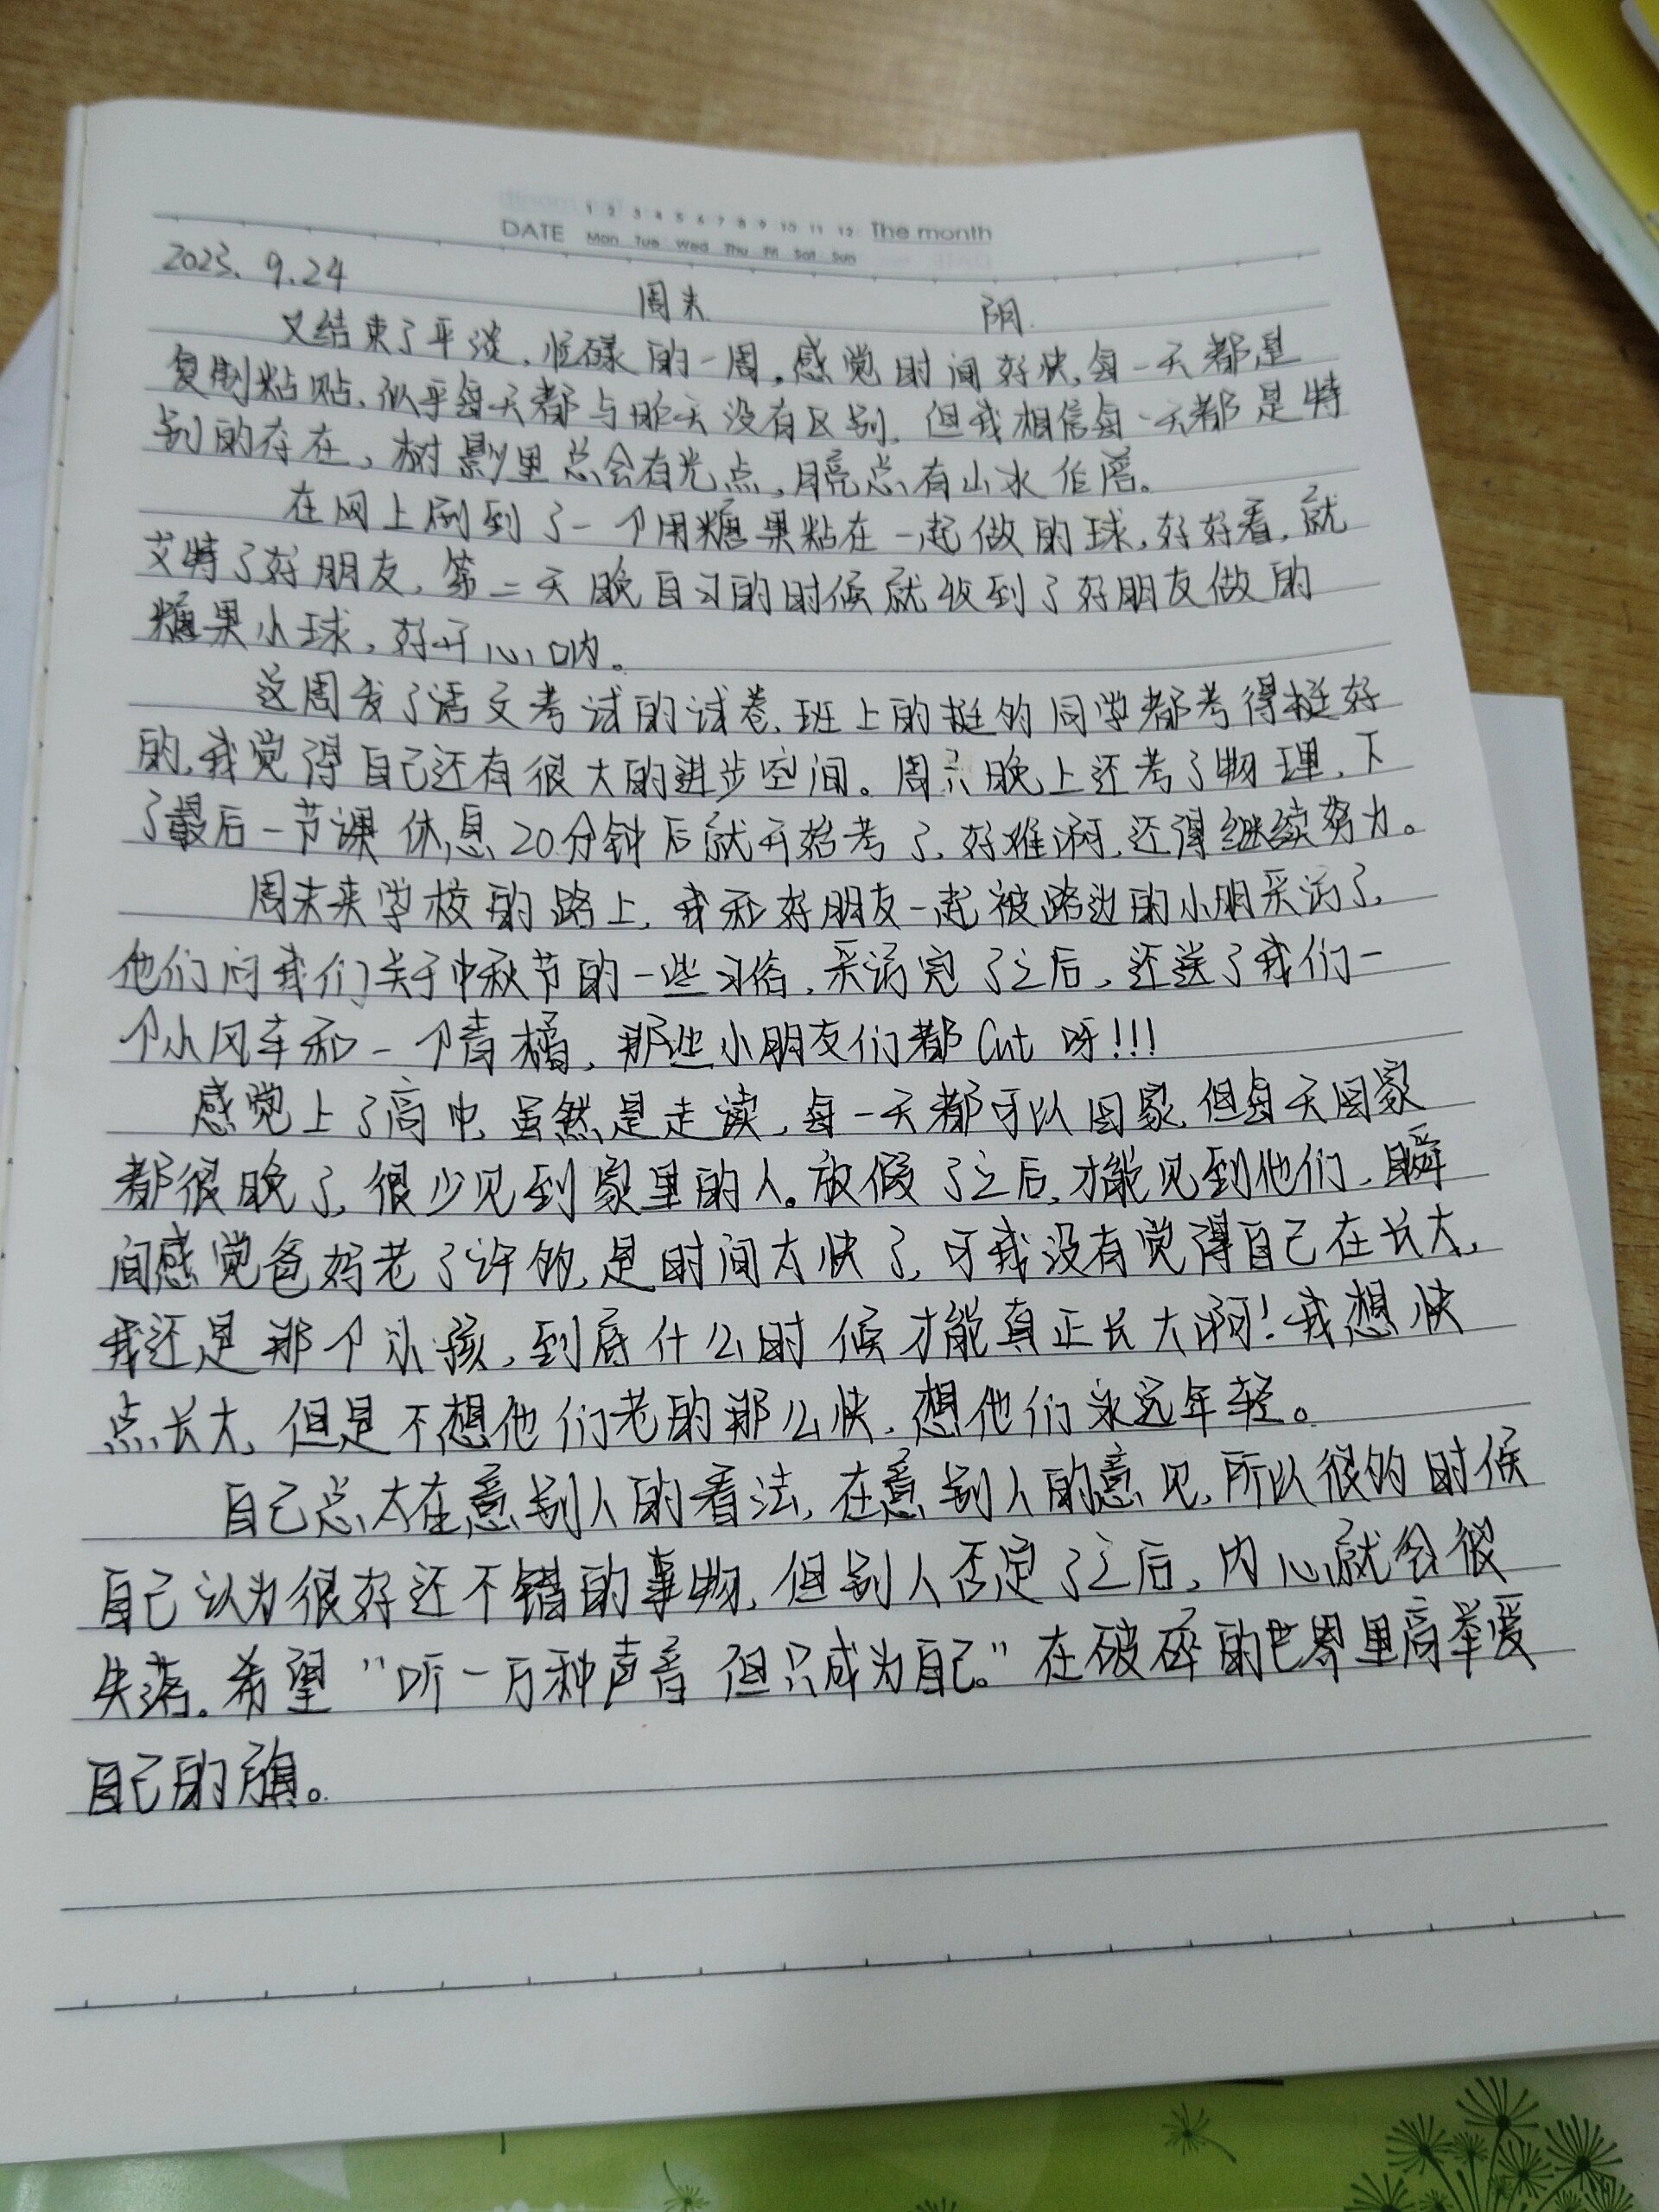 1 2 3 4 5 6 7 8 9 10 11 12 The month
DATE Mon Tue Wed Thu Fri Sat Sun
2023. 9.24 周末 阴
又结束了平淡、忙碌的一周,感觉时间好快,每一天都是
复制粘贴,似乎每天都与昨天没有区别。但我相信每一天都是特
别的存在,树影里总会有光点,月亮总有山水作陪。
在网上刷到了一个用糖果粘在一起做的球,好好看,就
艾特了好朋友,第二天晚自习的时候就收到了好朋友做的
糖果小球,好开心呐。
这周发了语文考试的试卷,班上的挺多同学都考得挺好
的,我觉得自己还有很大的进步空间。周六晚上还考了物理,下
了最后一节课休息20分钟后就开始考了,好难啊,还得继续努力。
周末来学校的路上,我和好朋友一起被路边的小朋采访了,
他们问我们关于中秋节的一些习俗,采访完了之后,还送了我们一
个小风车和一个青橘,那些小朋友们都Cut 呀!!!
感觉上了高中,虽然是走读,每一天都可以回家,但每天回家
都很晚了,很少见到家里的人。放假了之后,才能见到他们,瞬
间感觉爸妈老了许多,是时间太快了,可我没有觉得自己在长大,
我还是那个小孩,到底什么时候才能真正长大啊!我想快
点长大,但是不想他们老的那么快,想他们永远年轻。
自己总太在意别人的看法,在意别人的意见,所以很多时候
自己认为很好还不错的事物,但别人否定了之后,内心就会很
失落。希望“听一万种声音但只成为自己。”在破碎的世界里高举爱
自己的旗。